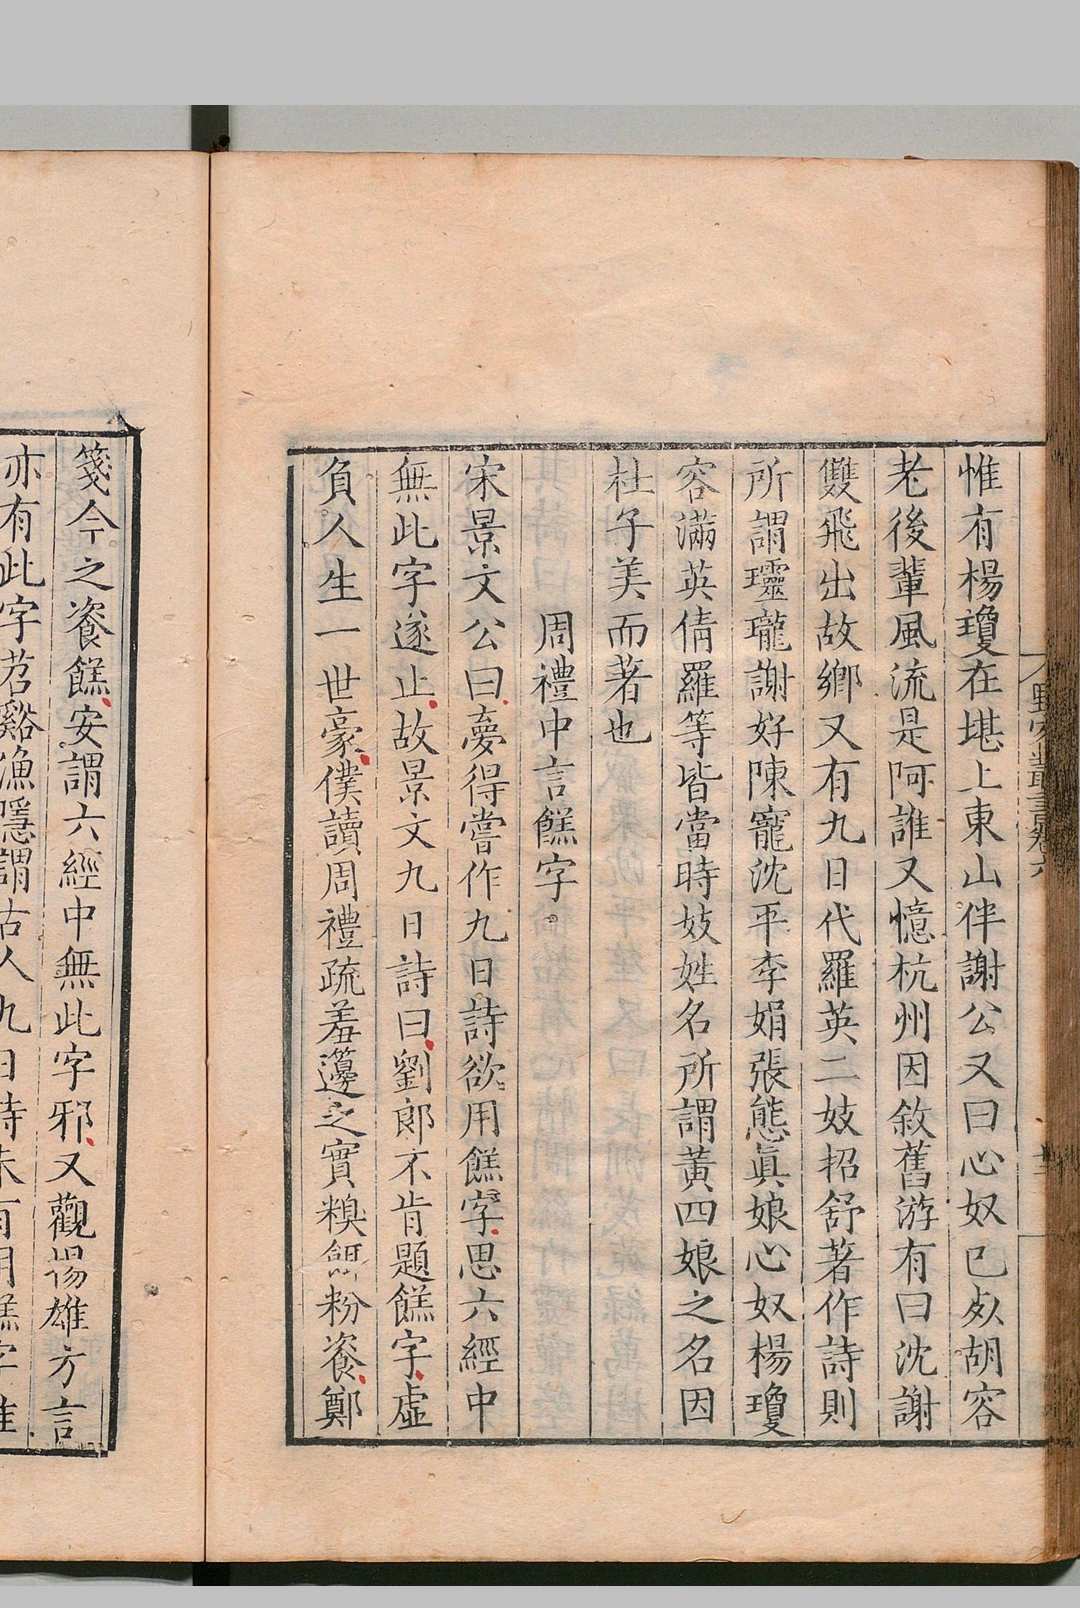 惟有楊瓊在堪上東山伴謝公又曰心奴已㚲胡容
老後輩風流是阿誰又憶杭州因敘舊游有曰沈謝
雙飛出故鄉又有九日代羅英二妓招舒著作詩則
所謂瓏謝好陳寵沈平李娟張態眞娘心奴楊瓊
容滿英倩羅等皆當時妓姓名所謂黃四娘之名因
杜子美而著也
周禮中言餻字
宋景文公曰夢得嘗作九日詩欲用餻字思六經中
無此字遂止故景文九日詩曰劉郎不肯題餻字虛
負人生一世豪僕讀周禮疏羞籩之實糗餌粉餈鄭
箋今之餈餻安謂六經中無此字邪又觀楊雄方言
亦有此字苕谿漁隱謂古人九日詩未有用餻字惟